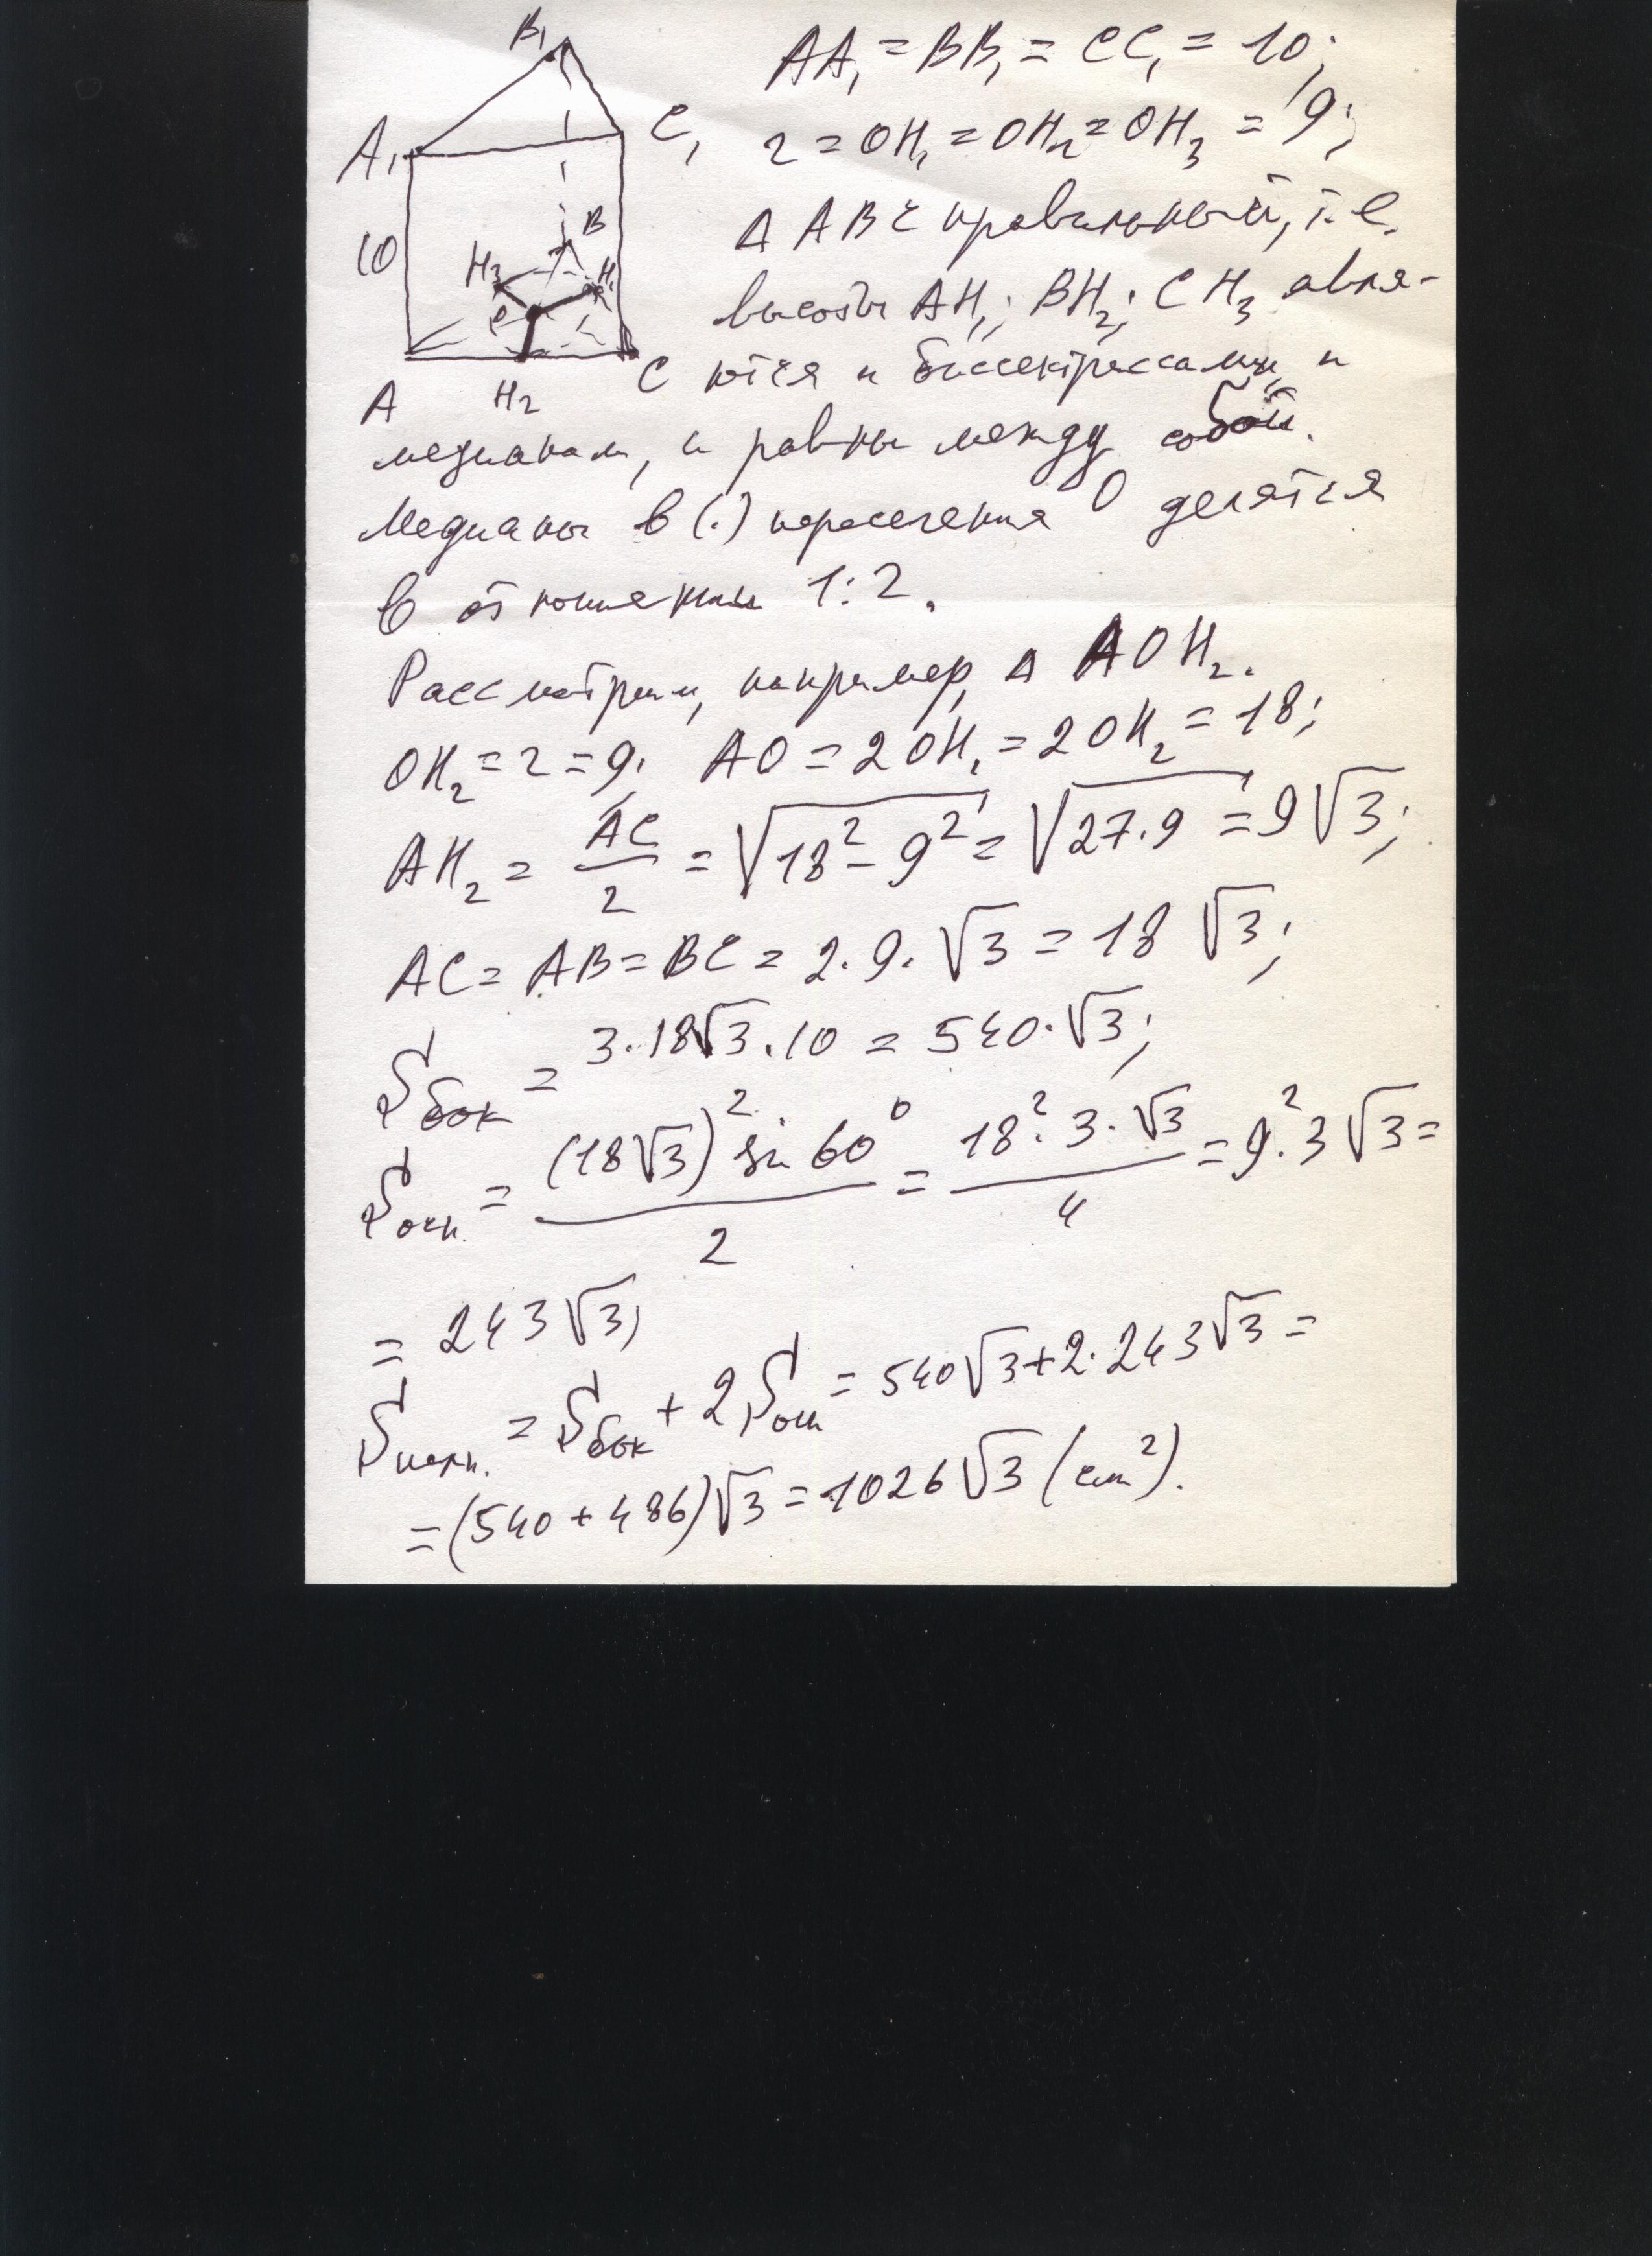 B₁
A₁
C₁
10
H₃
B
H₁
O
A
H₂
C
AA₁ = BB₁ = CC₁ = 10;
r = OH₁ = OH₂ = OH₃ = 9;
Δ ABC правильный, т.е.
высоты AH₁; BH₂; CH₃ явля-
ются и биссектрассами, и
медианам, и равны между собой.
Медианы в (.) пересечения O делятся
в отношении 1:2.
Рассмотрим, например, Δ AOH₂.
OH₂ = r = 9; AO = 2OH₁ = 2OH₂ = 18;
AH₂ = AC/2 = √(18² - 9²) = √(27·9) = 9√3;
AC = AB = BC = 2·9·√3 = 18√3;
Sбок = 3·18√3·10 = 540·√3;
Sосн. = (18√3)² sin 60°/2 = 18²·3·√3/4 = 9²·3√3 =
= 243√3;
Sполн. = Sбок + 2Sосн = 540√3 + 2·243√3 =
= (540 + 486)√3 = 1026√3 (см²).